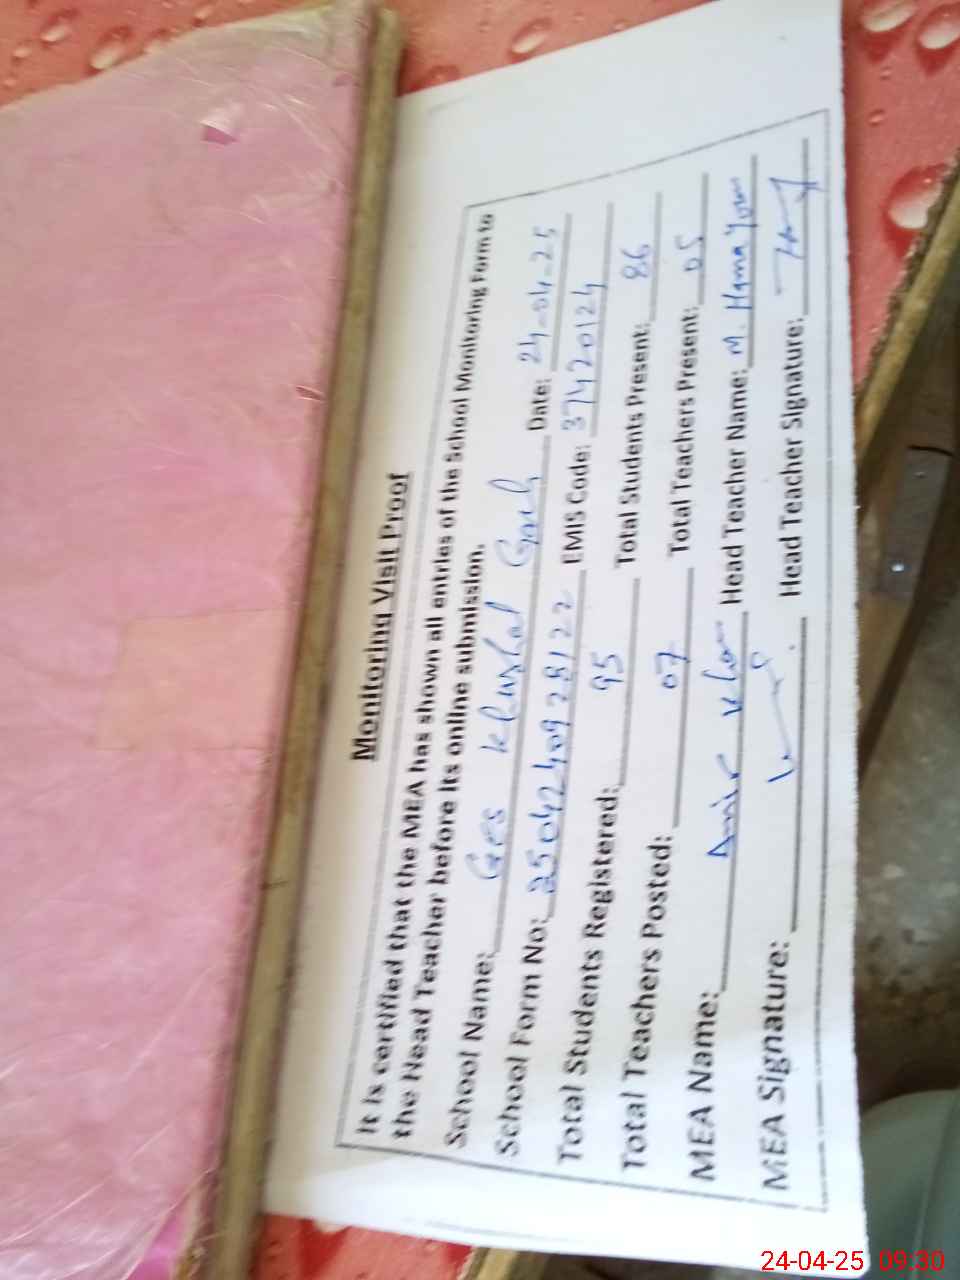 Monitoring Visit Proof
It is certified that the MEA has shown all entries of the School Monitoring Form to
the Head Teacher before its online submission.
School Name: GES Khushal Garh Date: 24-04-25
School Form No: 2504240928122 EMIS Code: 37420124
Total Students Registered: 95 Total Students Present: 86
Total Teachers Posted: 07 Total Teachers Present: 05
MEA Name: Amir Head Teacher Name: M. Hamayoun
MEA Signature: Head Teacher Signature:
24-04-25 09:30